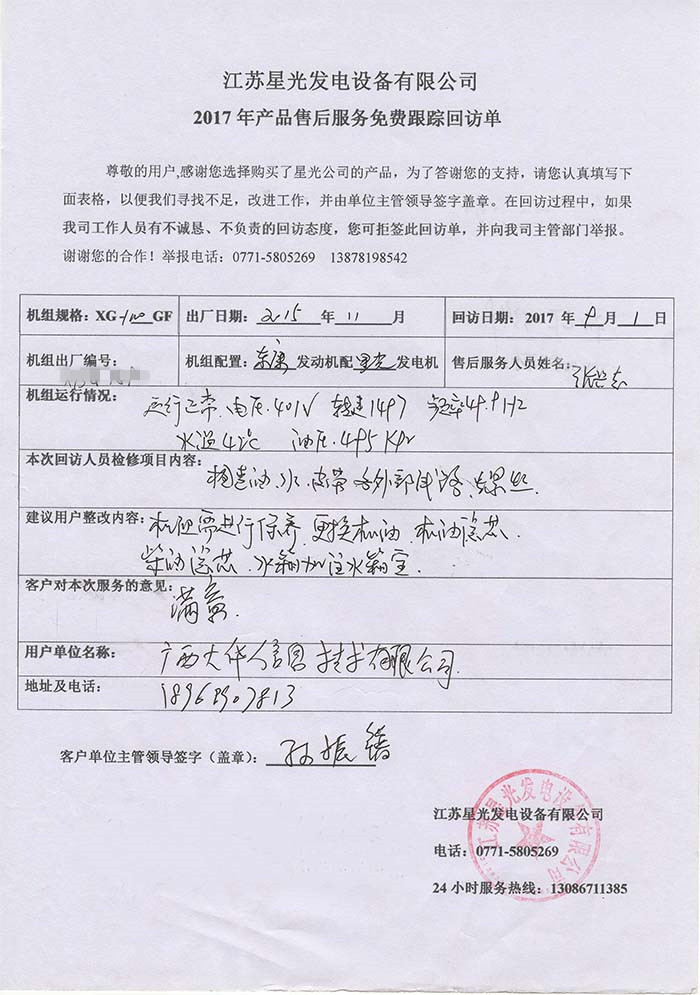 江苏星光发电设备有限公司
2017 年产品售后服务免费跟踪回访单
尊敬的用户,感谢您选择购买了星光公司的产品，为了答谢您的支持，请您认真填写下
面表格，以便我们寻找不足，改进工作，并由单位主管领导签字盖章。在回访过程中，如果
我司工作人员有不诚恳、不负责的回访态度，您可拒签此回访单，并向我司主管部门举报。
谢谢您的合作！举报电话：0771-5805269 13878198542
机组规格：XG-100GF 出厂日期：2015 年 11 月 回访日期：2017 年 9 月 1 日
机组出厂编号： 机组配置：东康 发动机配 星光 发电机 售后服务人员姓名：
机组运行情况：
运行正常、电压401V 转速1497 频率49.9HZ
水温 油压.495 KPa
本次回访人员检修项目内容：
油、水、皮带 各外部 螺丝.
建议用户整改内容：
机组需进行保养，更换机油 机油滤芯、
柴油滤芯、水箱加注水箱宝.
客户对本次服务的意见：
满意
用户单位名称：
广西大华信息技术有限公司
地址及电话：
客户单位主管领导签字（盖章）： 孙振
江苏星光发电设备有限公司
江苏星光发电设备有限公司
电话：0771-5805269
24 小时服务热线：13086711385